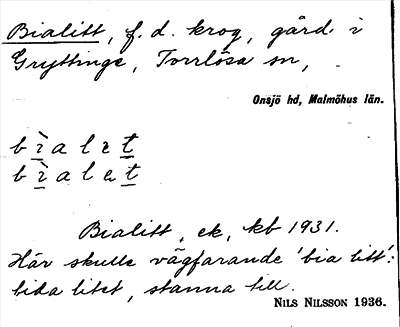 Bialitt, f. d. krog, gård i
Gryttinge, Torrlösa sn,
Onsjö hd, Malmöhus län.
b ì a l ɛ t
b ì a l e t
Bialitt, ek, kb 1931.
Här skulle vägfarande 'bia litt':
bida litet, stanna till.
NILS NILSSON 1936.